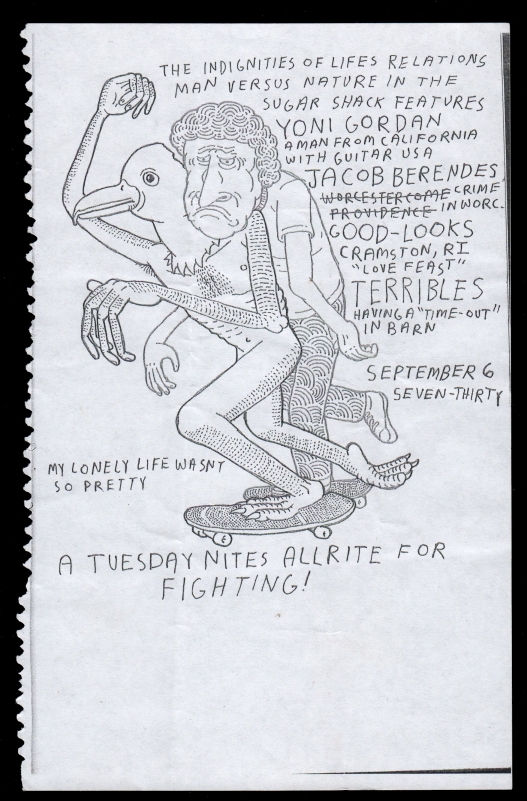 THE INDIGNITIES OF LIFES RELATIONS
MAN VERSUS NATURE IN THE
SUGAR SHACK FEATURES
YONI GORDAN
A MAN FROM CALIFORNIA
WITH GUITAR USA
JACOB BERENDES
WORCESTERCOME CRIME
PROVIDENCE IN WORC.
GOOD-LOOKS
CRAMSTON, RI
"LOVE FEAST"
TERRIBLES
HAVING A "TIME-OUT"
IN BARN
SEPTEMBER 6
SEVEN-THIRTY
MY LONELY LIFE WASNT
SO PRETTY
A TUESDAY NITES ALLRITE FOR
FIGHTING!